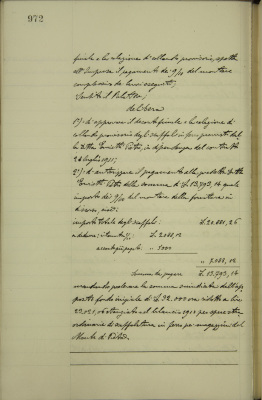 972
finale e la relazione di collaudo provvisorio, spetta
all'Impresa il pagamento dei 9/10 del montare
complessivo dei lavori eseguiti;
Sentito il Relatore;
delibera
1°) di approvare il conto finale e la relazione di
collaudo provvisorio degli scaffali in ferro provvisti dal
la Ditta
24 luglio 1911;
2°) di autorizzare il pagamento alla predetta Ditta
della somma di £. 13,793,14 quale
importo dei 9/10 del montare della fornitura in
discorso, cioè:
importo totale degli scaffali: £. 20.881,26
a dedurre: il decimo £. 2.088,12
acconti già pagati " 5000
" 7.088,12
Somma da pagare £. 13.793,14
mandando prelevare la somma suindicata dall'ap
posito fondo iniziale di £. 32.000 ora ridotto a lire
stanziato nel bilancio 1912 per spese stra
ordinarie di scaffalatura in ferro pei magazzini del
Monte di Pietà.